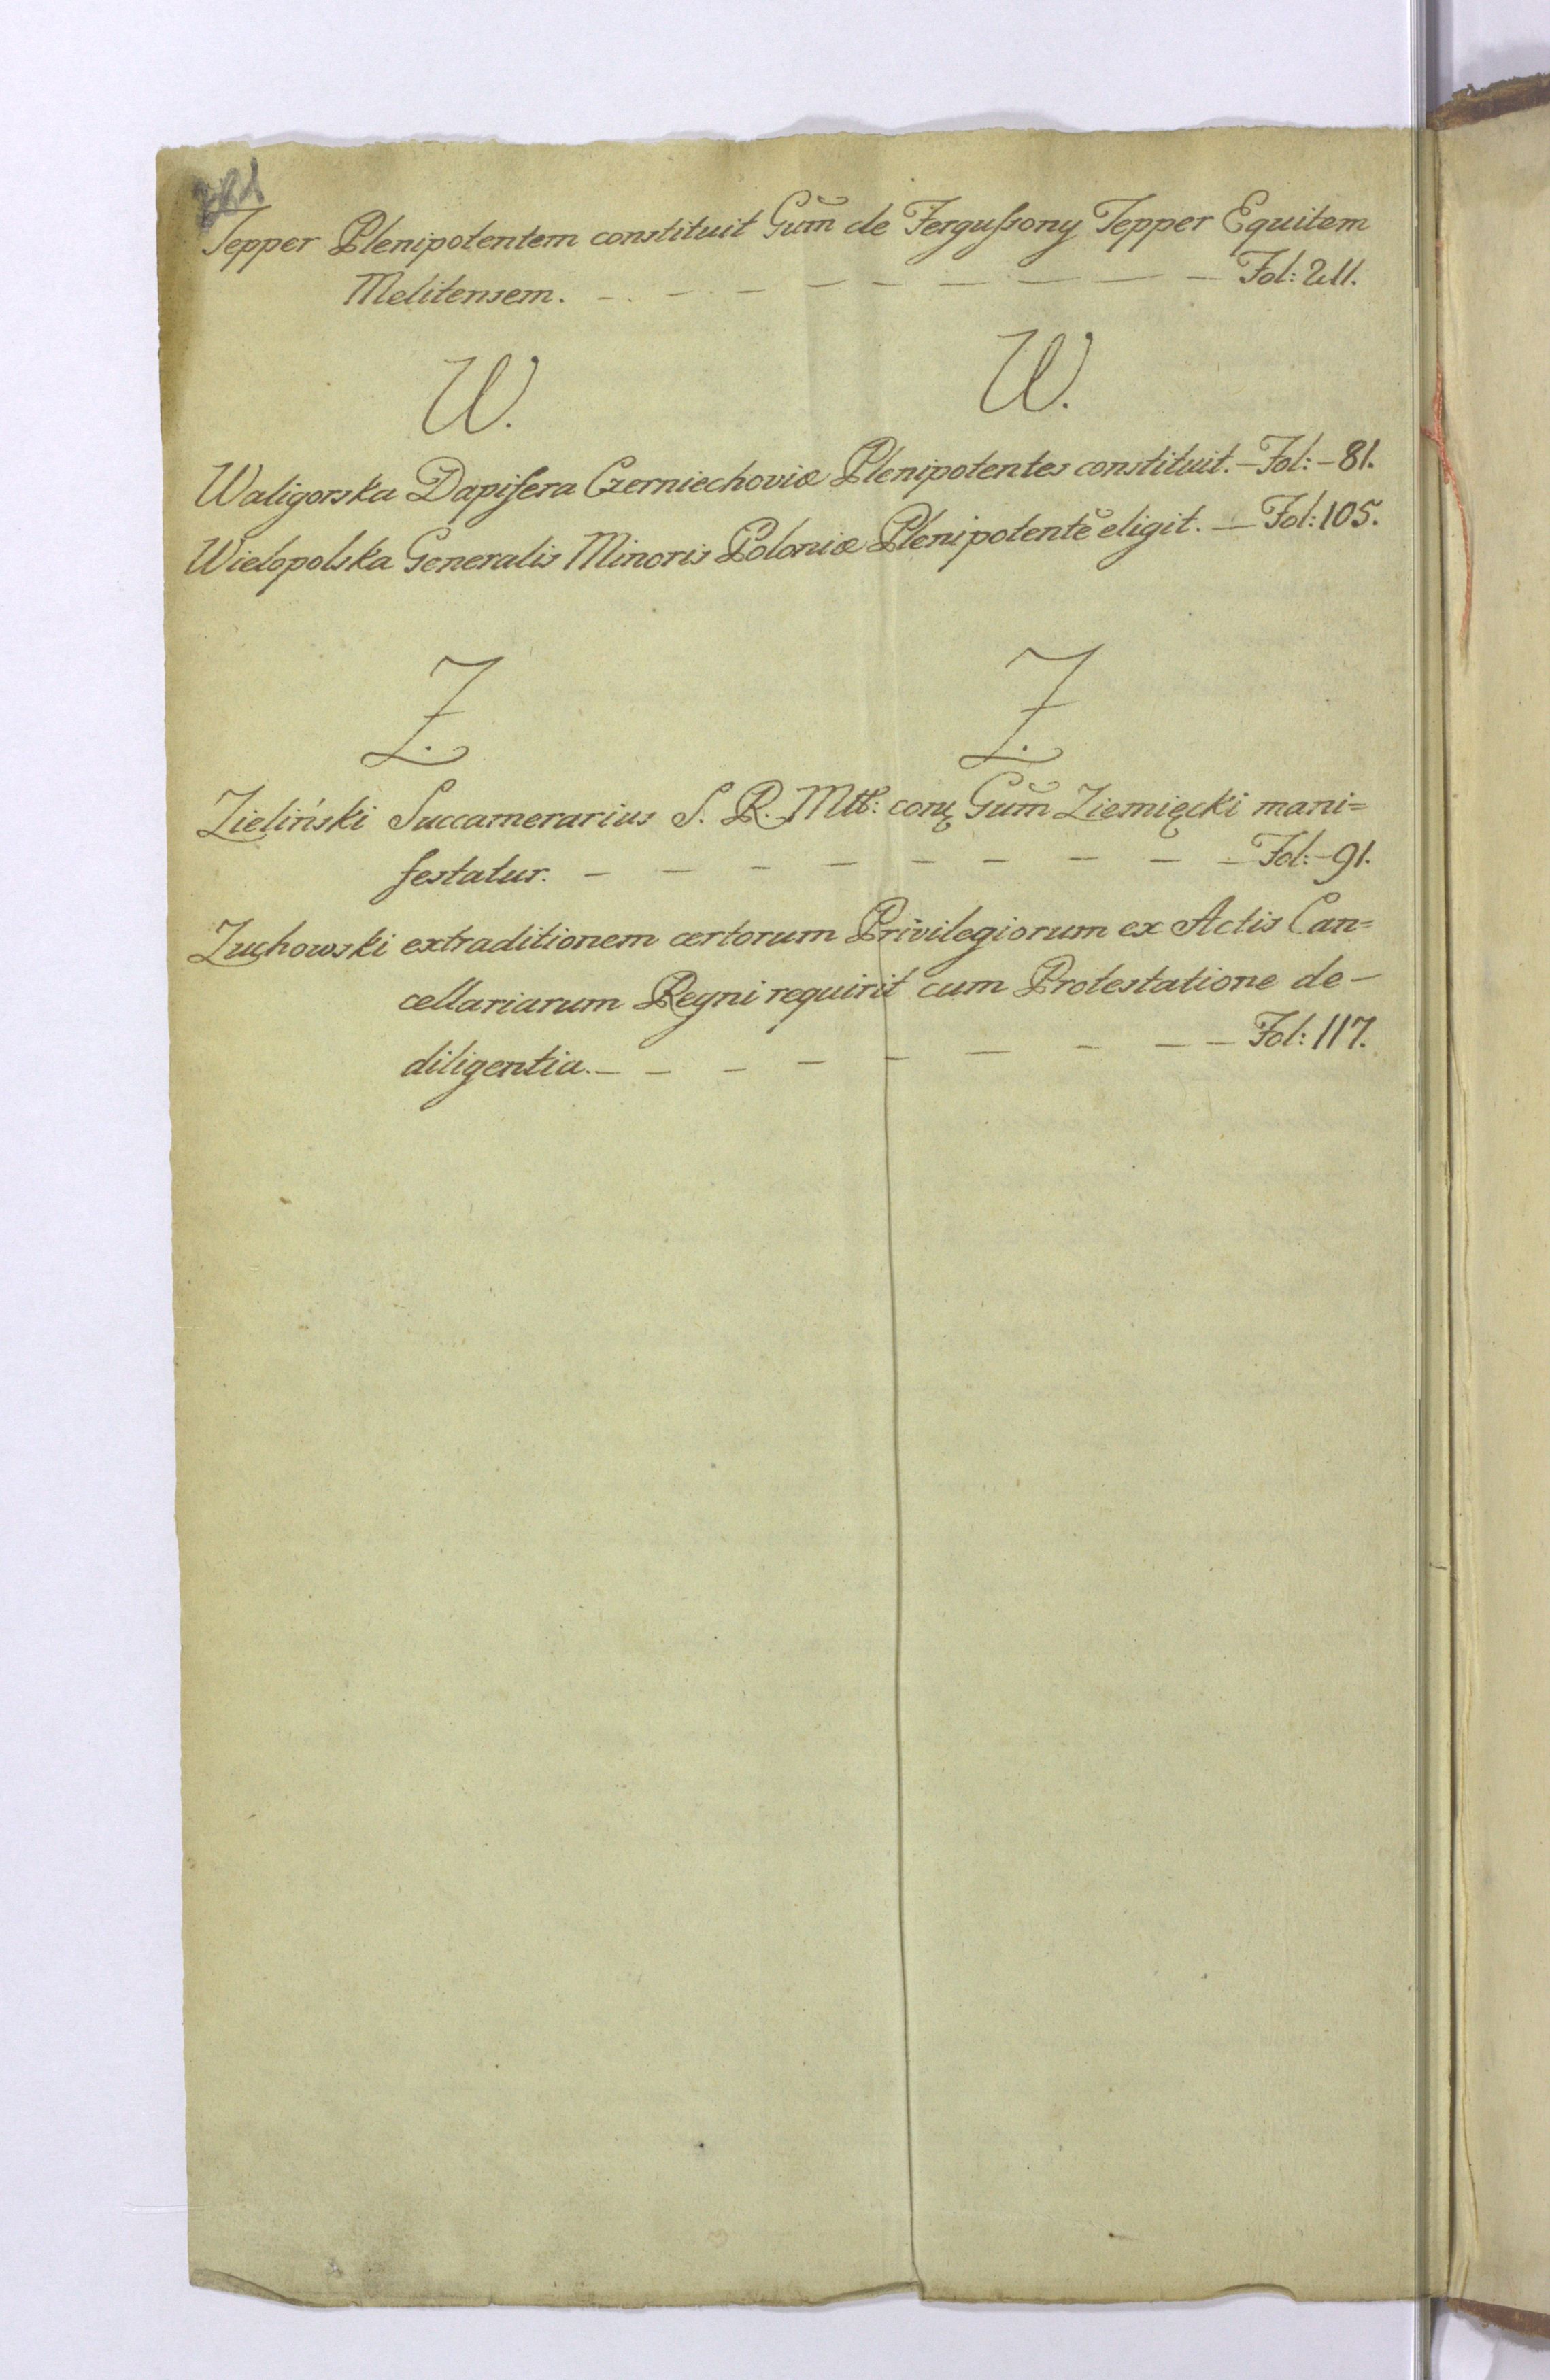 Tepper Plenipotentem constituit Gum̃ de Ferguſsony Tepper Equitem
Melitensem. - - - - - - - - Fol: 211.
W. W.
Waligorska Dapifera Czerniechoviæ Plenipotentes constituit. - Fol: - 81.
Wielopolska Generalis Minoris Poloniæ Plenipotentẽ eligit. - Fol: 105.
Z. Z.
Zieliński Succamerarius S. R. Mtt: conț Gum̃ Ziemięcki mani=
festatur. - - - - - - - - - Fol: - 91.
Zuchowski extraditionem certorum Privilegiorum ex Actis Can=
cellariarum Regni requirit cum Protestatione de -
diligentia. - - - - - - - - - Fol: 117.